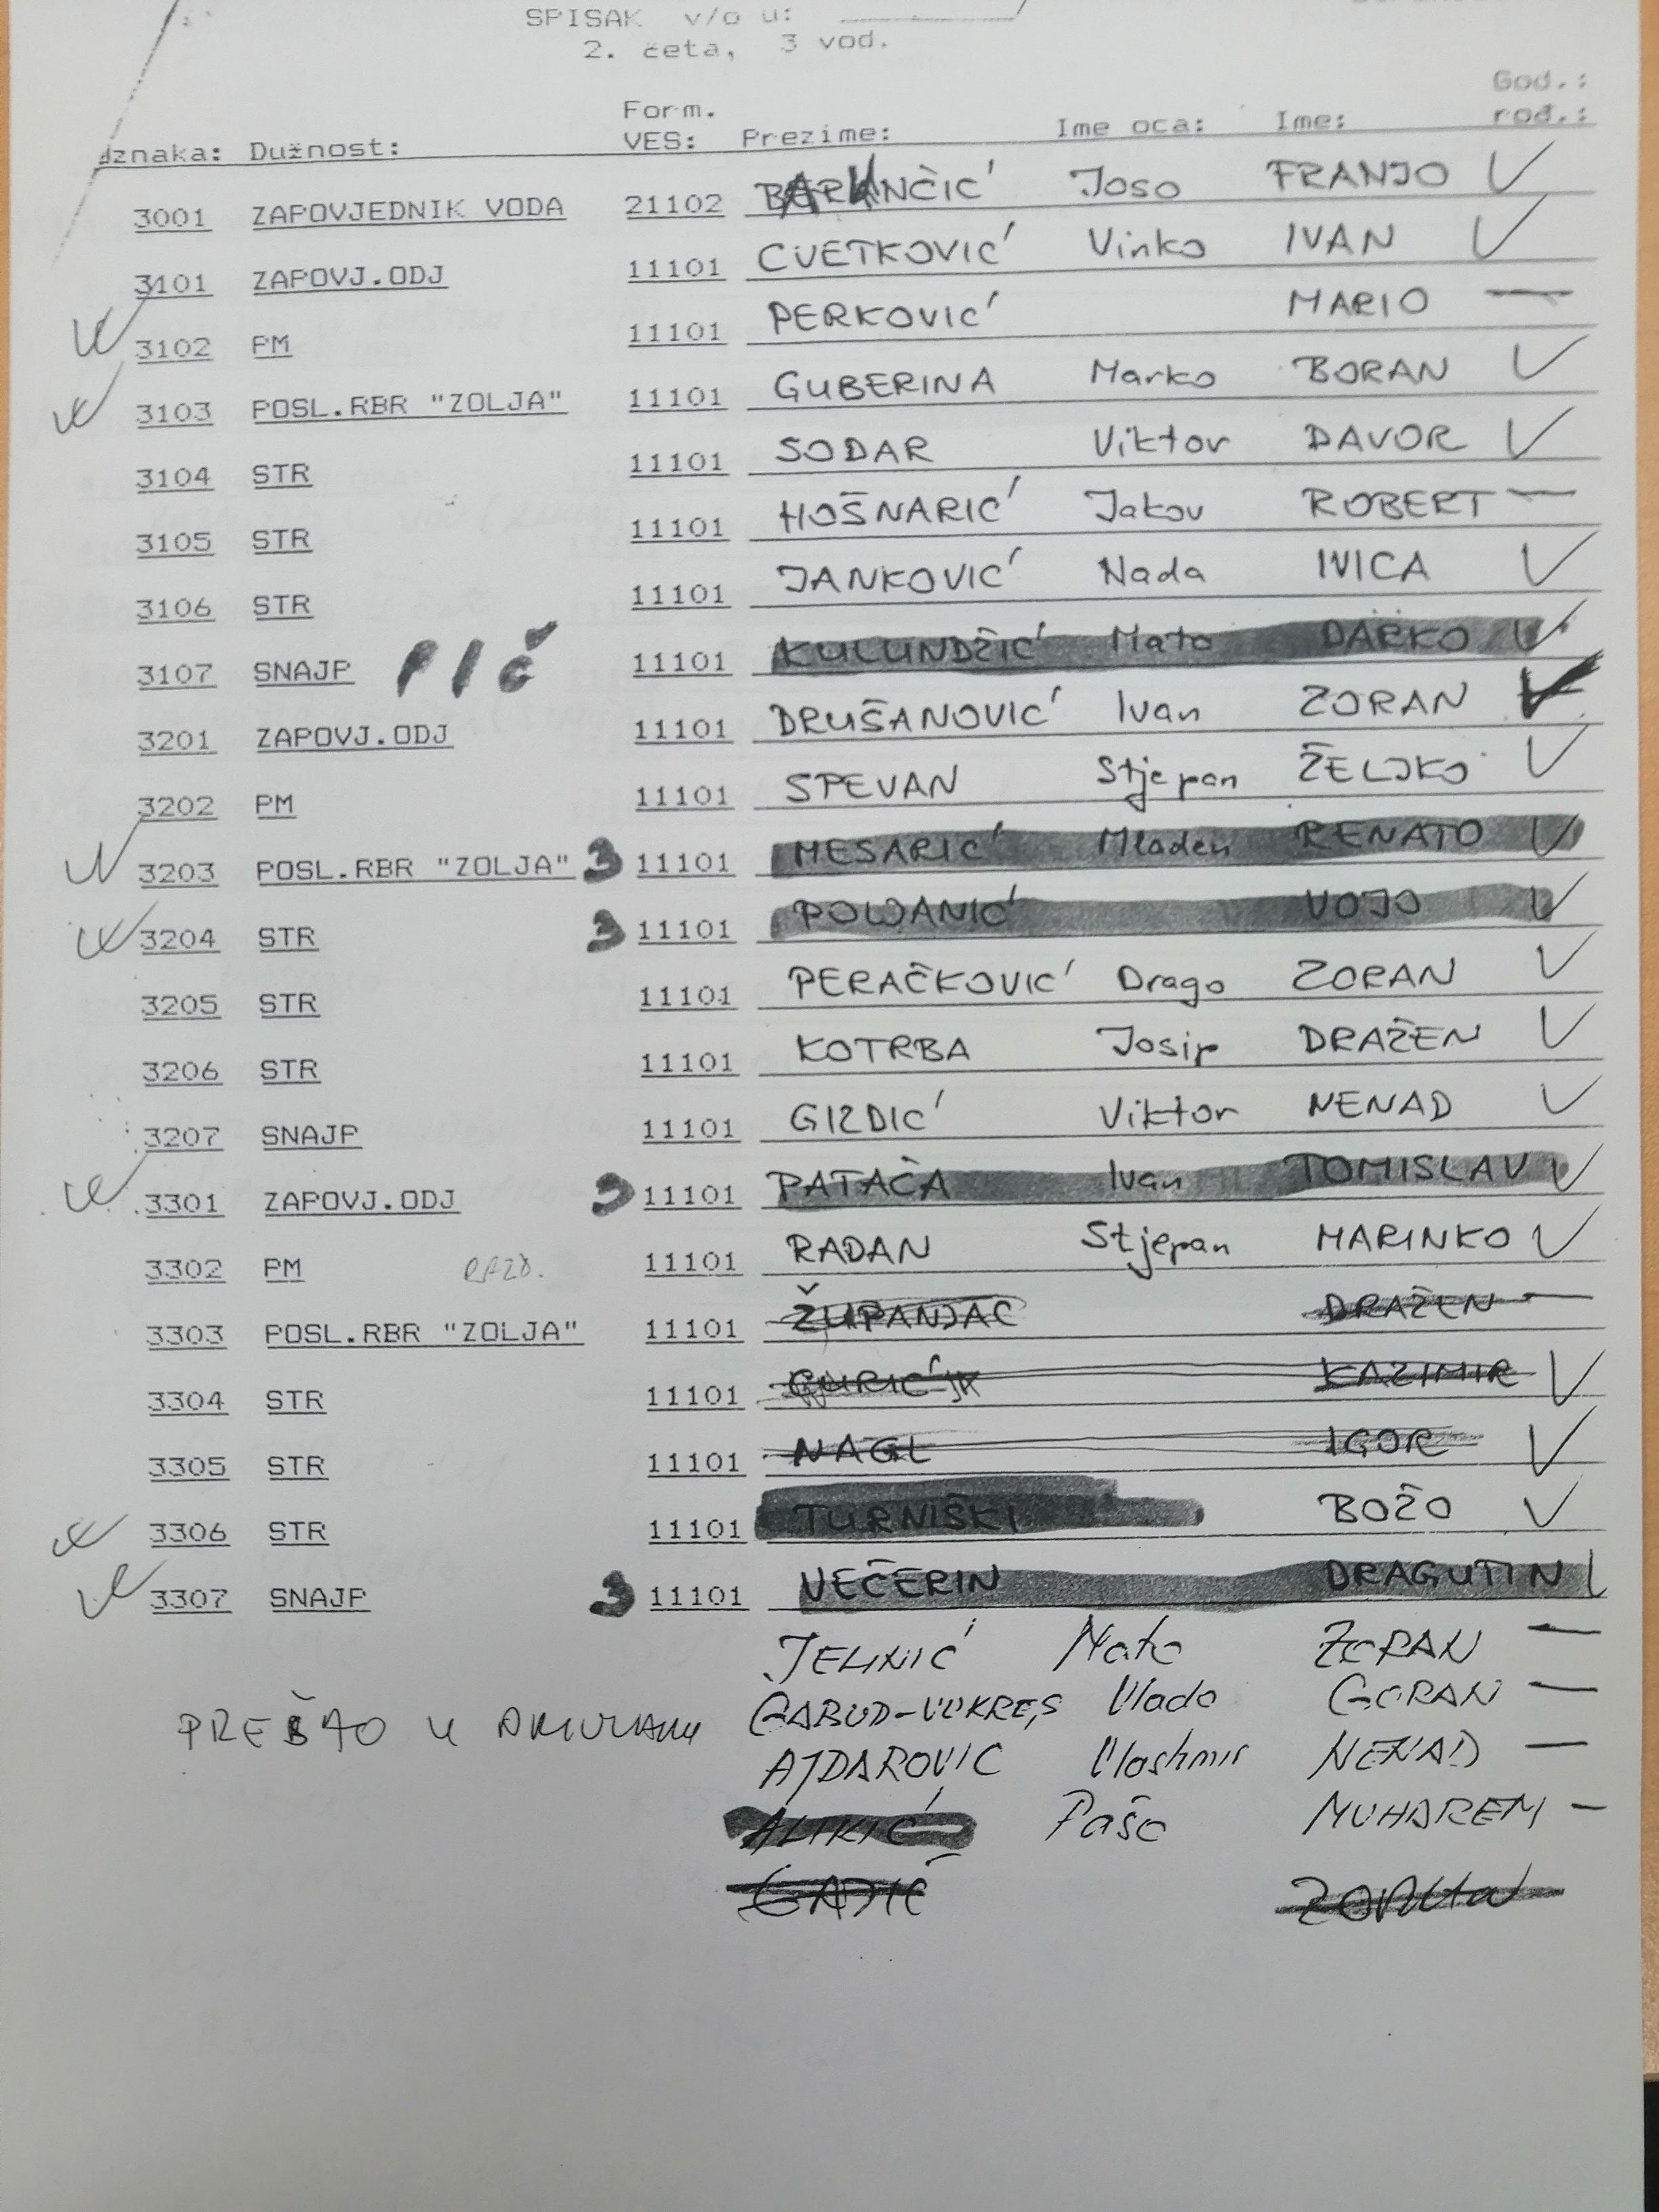 SPISAK v/o u:
2. četa, 3 vod.
God.:
znaka: Dužnost: Form. VES: Prezime: Ime oca: Ime: rođ.:
3001 ZAPOVJEDNIK VODA 21102 Joso FRANJO
3101 ZAPOVJ.ODJ 11101 CVETKOVIĆ Vinko IVAN
3102 PM 11101 PERKOVIĆ MARIO
3103 POSL.RBR "ZOLJA" 11101 GUBERINA Marko BORAN
3104 STR 11101 SODAR Viktor DAVOR
3105 STR 11101 HOŠNARIĆ Jakov ROBERT
3106 STR 11101 JANKOVIĆ Nada IVICA
3107 SNAJP PIČ 11101 KULUNDŽIĆ Mato DARKO
3201 ZAPOVJ.ODJ 11101 DRUŠANOVIĆ Ivan ZORAN
3202 PM 11101 SPEVAN Stjepan ŽELJKO
3203 POSL.RBR "ZOLJA" 3 11101 MESARIĆ Mladen RENATO
3204 STR 3 11101 VOJO
3205 STR 11101 PERAČKOVIĆ Drago ZORAN
3206 STR 11101 KOTRBA Josip DRAŽEN
3207 SNAJP 11101 GIZDIĆ Viktor NENAD
3301 ZAPOVJ.ODJ 3 11101 PATAČA Ivan TOMISLAV
3302 PM 11101 RADAN Stjepan MARINKO
3303 POSL.RBR "ZOLJA" 11101 ŽUPANJAC DRAŽEN
3304 STR 11101 KAZIMIR
3305 STR 11101 NAGL IGOR
3306 STR 11101 TURNIŠKI BOŽO
3307 SNAJP 3 11101 VEČERIN DRAGUTIN
JELINIĆ Mato ZORAN
PREŠAO U GABUD-VUKRES Vlado GORAN
AJDAROVIC NENAD
ALIKIĆ Pašo MUHAREM